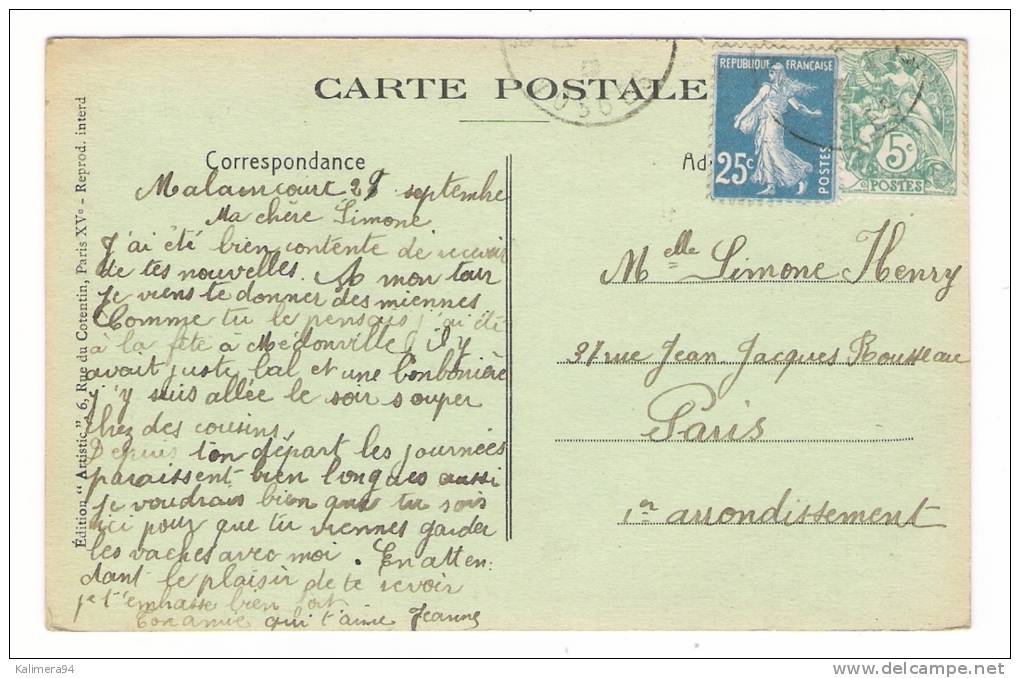 CARTE POSTALE
RÉPUBLIQUE FRANÇAISE
25c
POSTES
5c
POSTES
Correspondance
Ad
Malaincourt 28 septembre
Ma chère Simone
J'ai été bien contente de recevoir
de tes nouvelles. A mon tour
je viens te donner des miennes
Comme tu le pensais j'ai été
à la fête à Médonville il y
avait juste bal et une bonbonière
j'y suis allée le soir souper
chez des cousins.
Depuis ton départ les journées
paraissent bien longues aussi
je voudrais bien que tu sois
ici pour que tu viennes garder
les vaches avec moi. En atten-
dant le plaisir de te revoir
je t'embrasse bien fort
Ton amie qui t'aime Jeanne
Melle Simone Henry
37 rue Jean Jacques Rousseau
Paris
1er arrondissement
Édition "Artistic", 6, Rue du Cotentin, Paris XVe - Reprod. interd
Kalimera94
delcampe.net